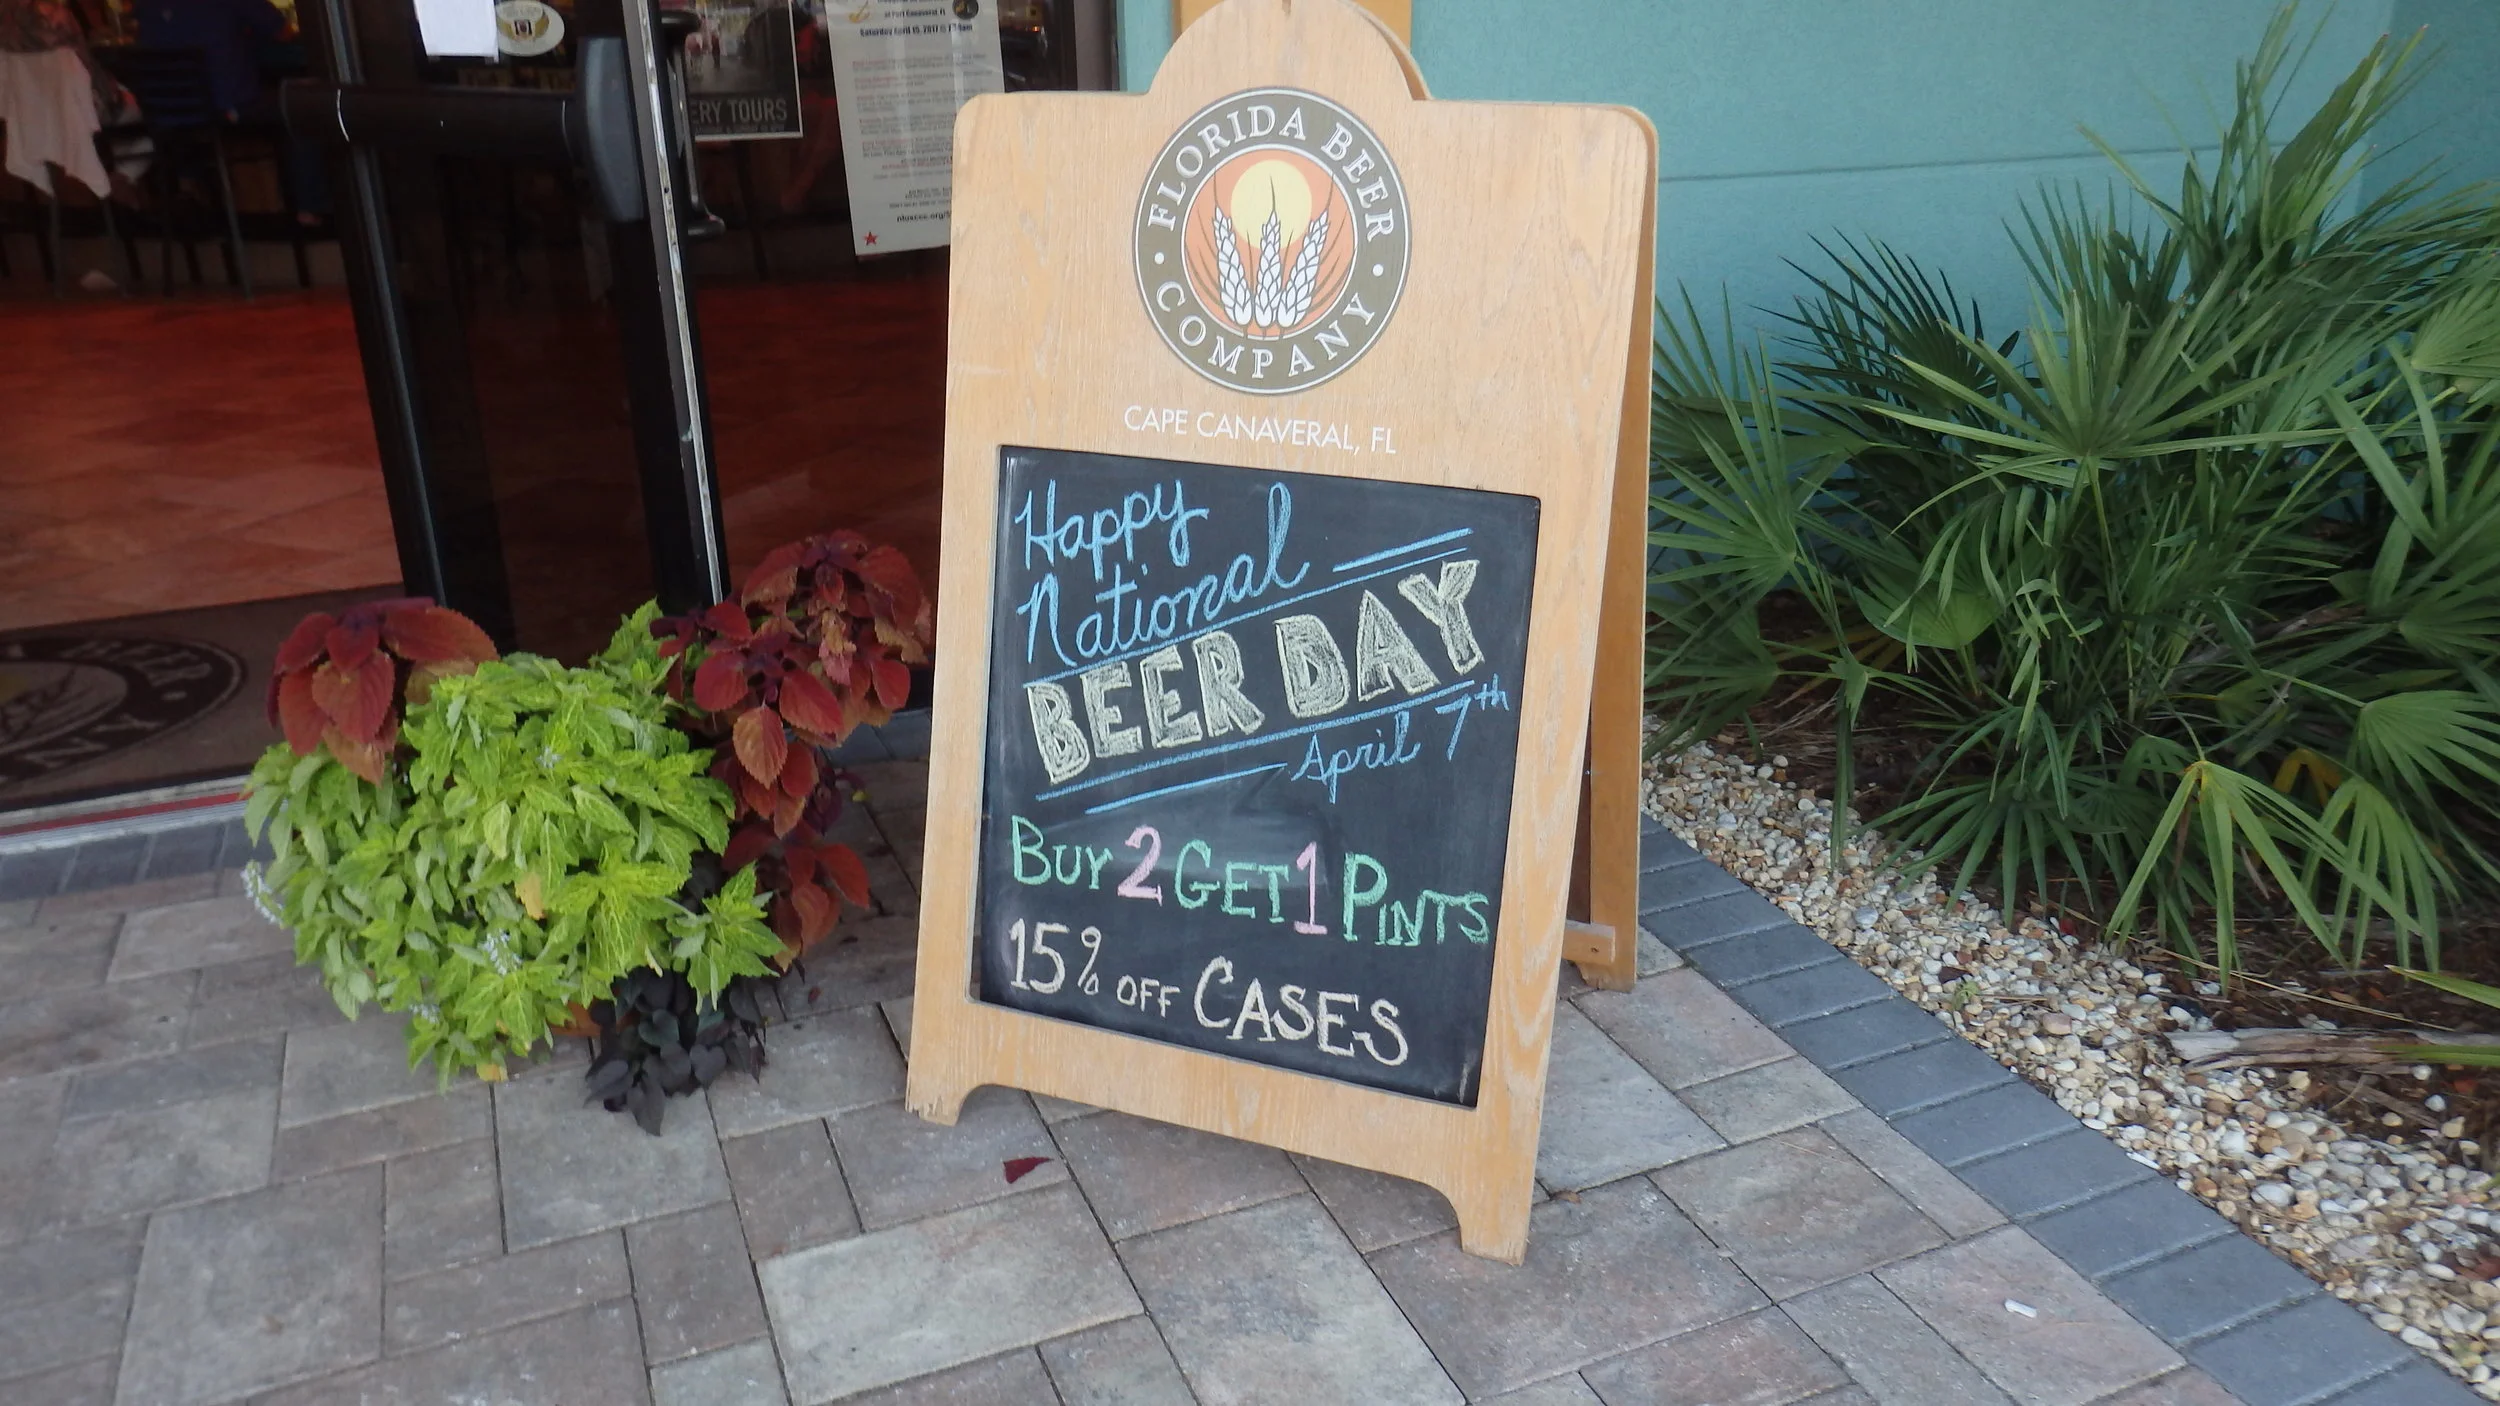 at Port Canaveral, FL
Saturday April 15, 2017 @
ERY TOURS
FLORIDA BEER
COMPANY
CAPE CANAVERAL, FL
Happy
National
BEER DAY
April 7th
BUY 2 GET 1 PINTS
15% OFF CASES